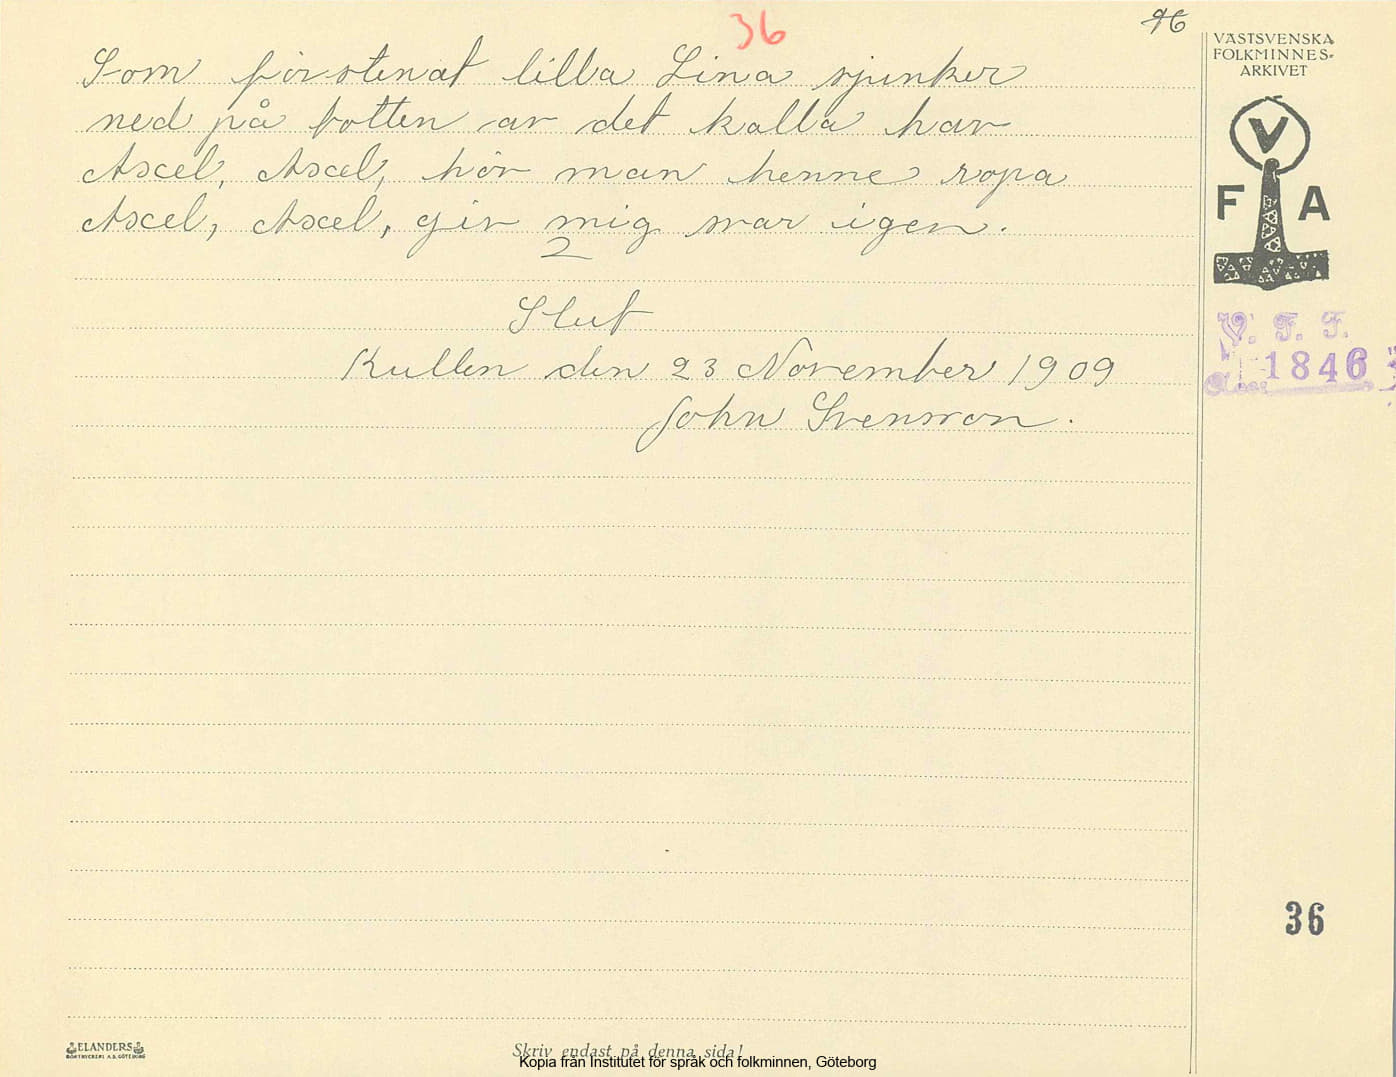 36
96
Som förstenat lilla Lina sjunker
ned på botten av det kalla hav
Axcel, Axcel, hör man henne ropa
Axcel, Axcel, giv mig svar igen.
2
Slut
Kullen den 23 November 1909
John Svensson.
VÄSTSVENSKA
FOLKMINNES-
ARKIVET
V
F A
V. F. F.
1846
36
ELANDERS
BOKTRYCKERI A.B. GÖTEBORG
Skriv endast på denna sida!
Kopia från Institutet för språk och folkminnen, Göteborg